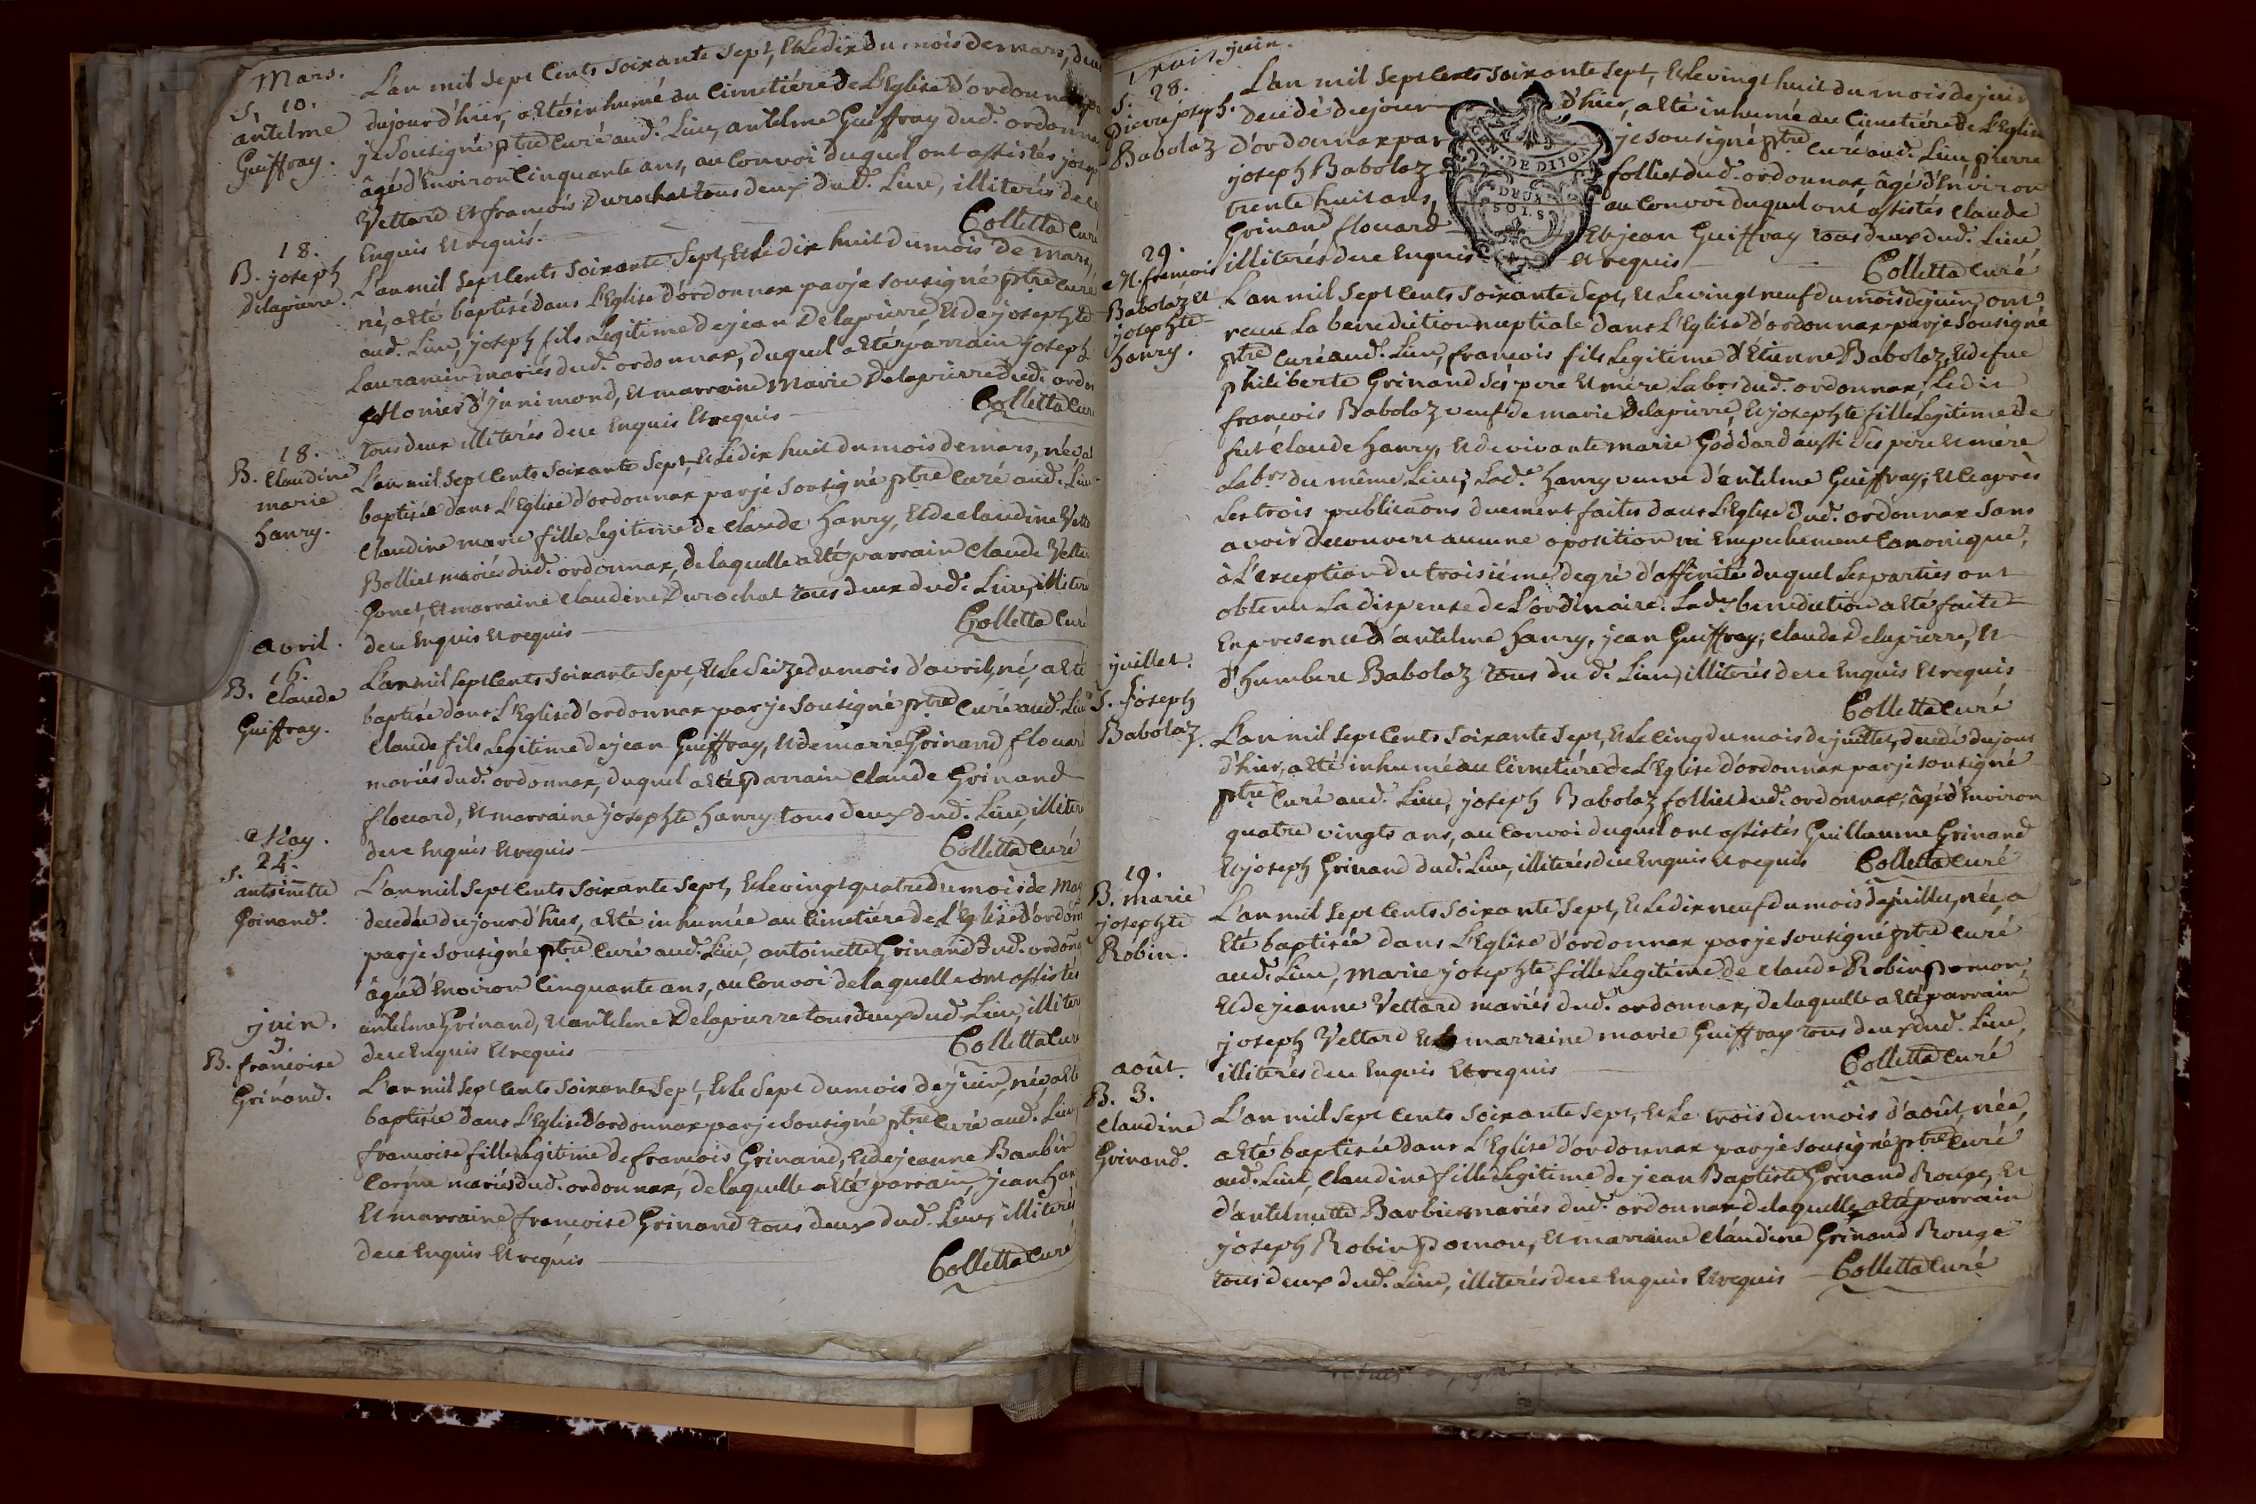 Mars.
S. 10.
antelme
Guiffray.
L'an mil sept Cents soixante sept, Et Le dix du mois de mars,
du jour d'hier, a été inhumé au Cimetiére de L'Eglise d'ordonnax
je sousigné ptre Curé aud. Lieu, antelme Guiffray dud. ordonna
âgé d'Environ Cinquante ans, au Convoi duquel ont assistés josep
Vettard Et francois Durochat tous deux dud. Lieu, illiterés de ce
Enquis Et requis.
Colletta Curé
18.
B. joseph
Delapierre.
L'an mil sept Cents soixante sept, Et Le dix huit du mois de mars,
né, a été baptisé dans L'Eglise d'ordonnax par je sousigné ptre Curé
aud. Lieu, joseph fils Legitime de jean Delapierre, Et de josephte
Lauransin mariés dud. ordonnax, duquel a été parrain joseph
d'Junimond, Et marraine Marie Delapierre dud. ordon
tous deux illiterés de ce Enquis Et requis
Colletta Curé
18.
B. Claudine
marie
hanry.
L'an mil sept Cents soixante sept, Et Le dix huit du mois de mars, née a
baptisée dans L'Eglise d'ordonnax par je sousigné ptre Curé aud. Lieu
Claudine marie fille Legitime de Claude hanry, Et de Claudine Vett
Bolliet mariés dud. ordonnax, de laquelle a été parrain Claude Vettar
Gonet, Et marraine Claudine Durochat tous deux dud. Lieu, illiter
de ce Enquis Et requis
Colletta Curé
avril.
16.
B. Claude
Guiffray.
L'an mil sept Cents soixante sept, Et Le seize du mois d'avril, né, a été
baptisé dans L'Eglise d'ordonnax par je sousigné ptre Curé aud. Lieu
Claude fils Legitime de jean Guiffray, Et de marie Grinand flouard
mariés dud. ordonnax, duquel a été parrain Claude Grinand
flouard, Et marraine josephte hanry tous deux dud. Lieu, illiter
de ce Enquis Et requis
Colletta Curé
May.
S. 24.
antoinette
Grinand.
L'an mil sept Cents soixante sept, Et Le vingt quatre du mois de May
decedée du jour d'hier, a été inhumée au Cimetiére de L'Eglise d'ordonn
par je sousigné ptre Curé aud. Lieu, antoinette Grinand dud. ordonn
âgée d'Environ Cinquante ans, au Convoi de laquelle ont assistés
antelme Grinand, Et antelme Delapierre tous deux dud. Lieu, illiter
de ce Enquis Et requis
Colletta Curé
juin.
7.
B. francoise
Grinand.
L'an mil sept Cents soixante sept, Et Le sept du mois de juin, née, a été
baptisée dans L'Eglise d'ordonnax par je sousigné ptre Curé aud. Lieu
francoise fille Legitime de francois Grinand, Et de jeanne Barbier
mariés dud. ordonnax, de laquelle a été parrain jean han
Et marraine francoise Grinand tous deux dud. Lieu, illiterés
de ce Enquis Et requis
Colletta Curé
juin.
S. 28.
Pierre joseph.
Babolaz
L'an mil sept Cents soixante sept, Et Le vingt huit du mois de juin
decedé du jour d'hier, a été inhumé au Cimetiére de L'Eglise
d'ordonnax par je sousigné ptre Curé aud. Lieu pierre
joseph Babolaz folliet dud. ordonnax, âgé d'Environ
trente huit ans, au Convoi duquel ont assistés Claude
Grinand flouard Et jean Guiffray tous deux dud. Lieu,
illiterés de ce Enquis Et requis
Colletta Curé
GEN. DE DIJON
DEUX
SOLS
29.
M. francois
Babolaz Et
josephte
hanry.
L'an mil sept Cents soixante sept, Et Le vingt neuf du mois de juin, ont
recue La benediction nuptiale dans L'Eglise d'ordonnax par je sousigné
ptre Curé aud. Lieu, francois fils Legitime d'Etienne Babolaz, Et de fue
philiberte Grinand ses pere Et mere Labrs dud. ordonnax, Ledit
francois Babolaz veuf de marie Delapierre, Et josephte fille Legitime de
fut Claude hanry, Et de vivante marie Goddard aussi ses pere Et mere
Labrs du même Lieu; Lad. hanry veuve d'antelme Guiffray; Et ce après
Les trois publicaons duement faites dans L'Eglise dud. ordonnax sans
avoir decouvert aucune oposition ni Empechement Canonique,
à L'exception du troisiéme degré d'affinité duquel Les parties ont
obtenu La dispense de L'ordinaire. Lad. benediction a été faite
En presence d'antelme hanry, jean Guiffray, Claude Delapierre, Et
d'humbert Babolaz tous du d. Lieu, illiterés de ce Enquis Et requis
Colletta Curé
juillet.
S. joseph
Babolaz.
L'an mil sept Cents soixante sept, Et Le Cinq du mois de juillet, decedé du jour
d'hier, a été inhumé au Cimetiére de L'Eglise d'ordonnax par je sousigné
ptre Curé aud. Lieu, joseph Babolaz folliet dud. ordonnax, âgé d'Environ
quatre vingts ans, au Convoi duquel ont assistés Guillaume Grinand
Et joseph Grinand dud. Lieu, illiterés de ce Enquis Et requis Colletta Curé
19.
B. marie
josephte
Robin.
L'an mil sept Cents soixante sept, Et Le dix neuf du mois de juillet, née, a
été baptisée dans L'Eglise d'ordonnax par je sousigné ptre Curé
aud. Lieu, marie josephte fille Legitime de Claude Robin Pomon,
Et de jeanne Vettard mariés dud. ordonnax, de laquelle a été parrain
joseph Vettard Et marraine marie Guiffray tous deux dud. Lieu,
illiterés de ce Enquis Et requis
Colletta Curé
août.
B. 3.
Claudine
Grinand.
L'an mil sept Cents soixante sept, Et Le trois du mois d'août, née,
a été baptisée dans L'Eglise d'ordonnax par je sousigné ptre Curé
aud. Lieu, Claudine fille Legitime de jean Baptiste Grinand Rouge, Et
d'antelmette Barbier mariés dud. ordonnax de laquelle a été parrain
joseph Robin Pomon, Et marraine Claudine Grinand Rouge
tous deux dud. Lieu, illiterés de ce Enquis Et requis Colletta Curé